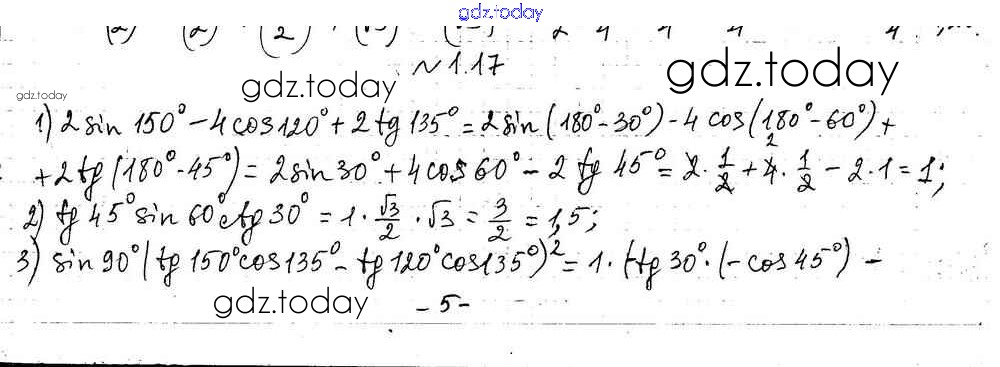 gdz.today
№1.17
gdz.today gdz.today
gdz.today
1) 2 sin 150° − 4 cos 120° + 2 tg 135° = 2 sin (180° − 30°) − 4 cos (180° − 60°) +
+ 2 tg (180° − 45°) = 2 sin 30° + 4 cos 60° − 2 tg 45° = 2 · 1/2 + 4 · 1/2 − 2 · 1 = 1;
2) tg 45° sin 60° ctg 30° = 1 · √3/2 · √3 = 3/2 = 1,5;
3) sin 90° (tg 150° cos 135° − tg 120° cos 135°)² = 1 · (-tg 30° · (− cos 45°) −
gdz.today
- 5 -